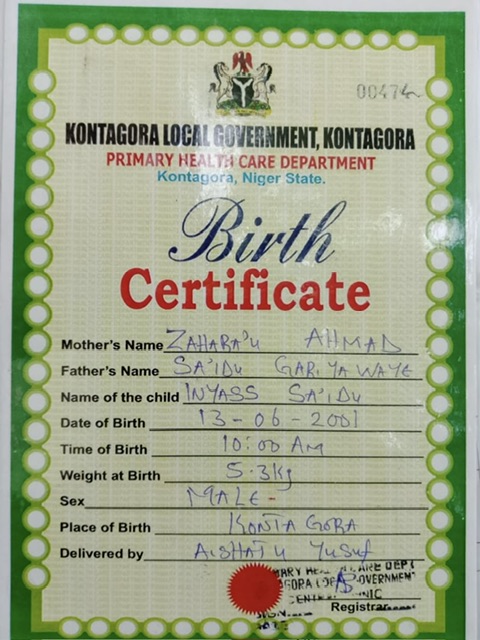 0047
KONTAGORA LOCAL GOVERNMENT, KONTAGORA
PRIMARY HEALTH CARE DEPARTMENT
Kontagora, Niger State.
Birth
Certificate
Mother's Name ZAHARA'U AHMAD
Father's Name SA'IDU GARIYA WAYE
Name of the child INYASS SA'IDU
Date of Birth 13-06-2001
Time of Birth 10:00 AM
Weight at Birth 5.3kg
Sex MALE-
Place of Birth KONTAGORA
Delivered by AISHATU YUSUF
ARE DEPT
AGORA GOVERNMENT
CENT NIC
Registrar